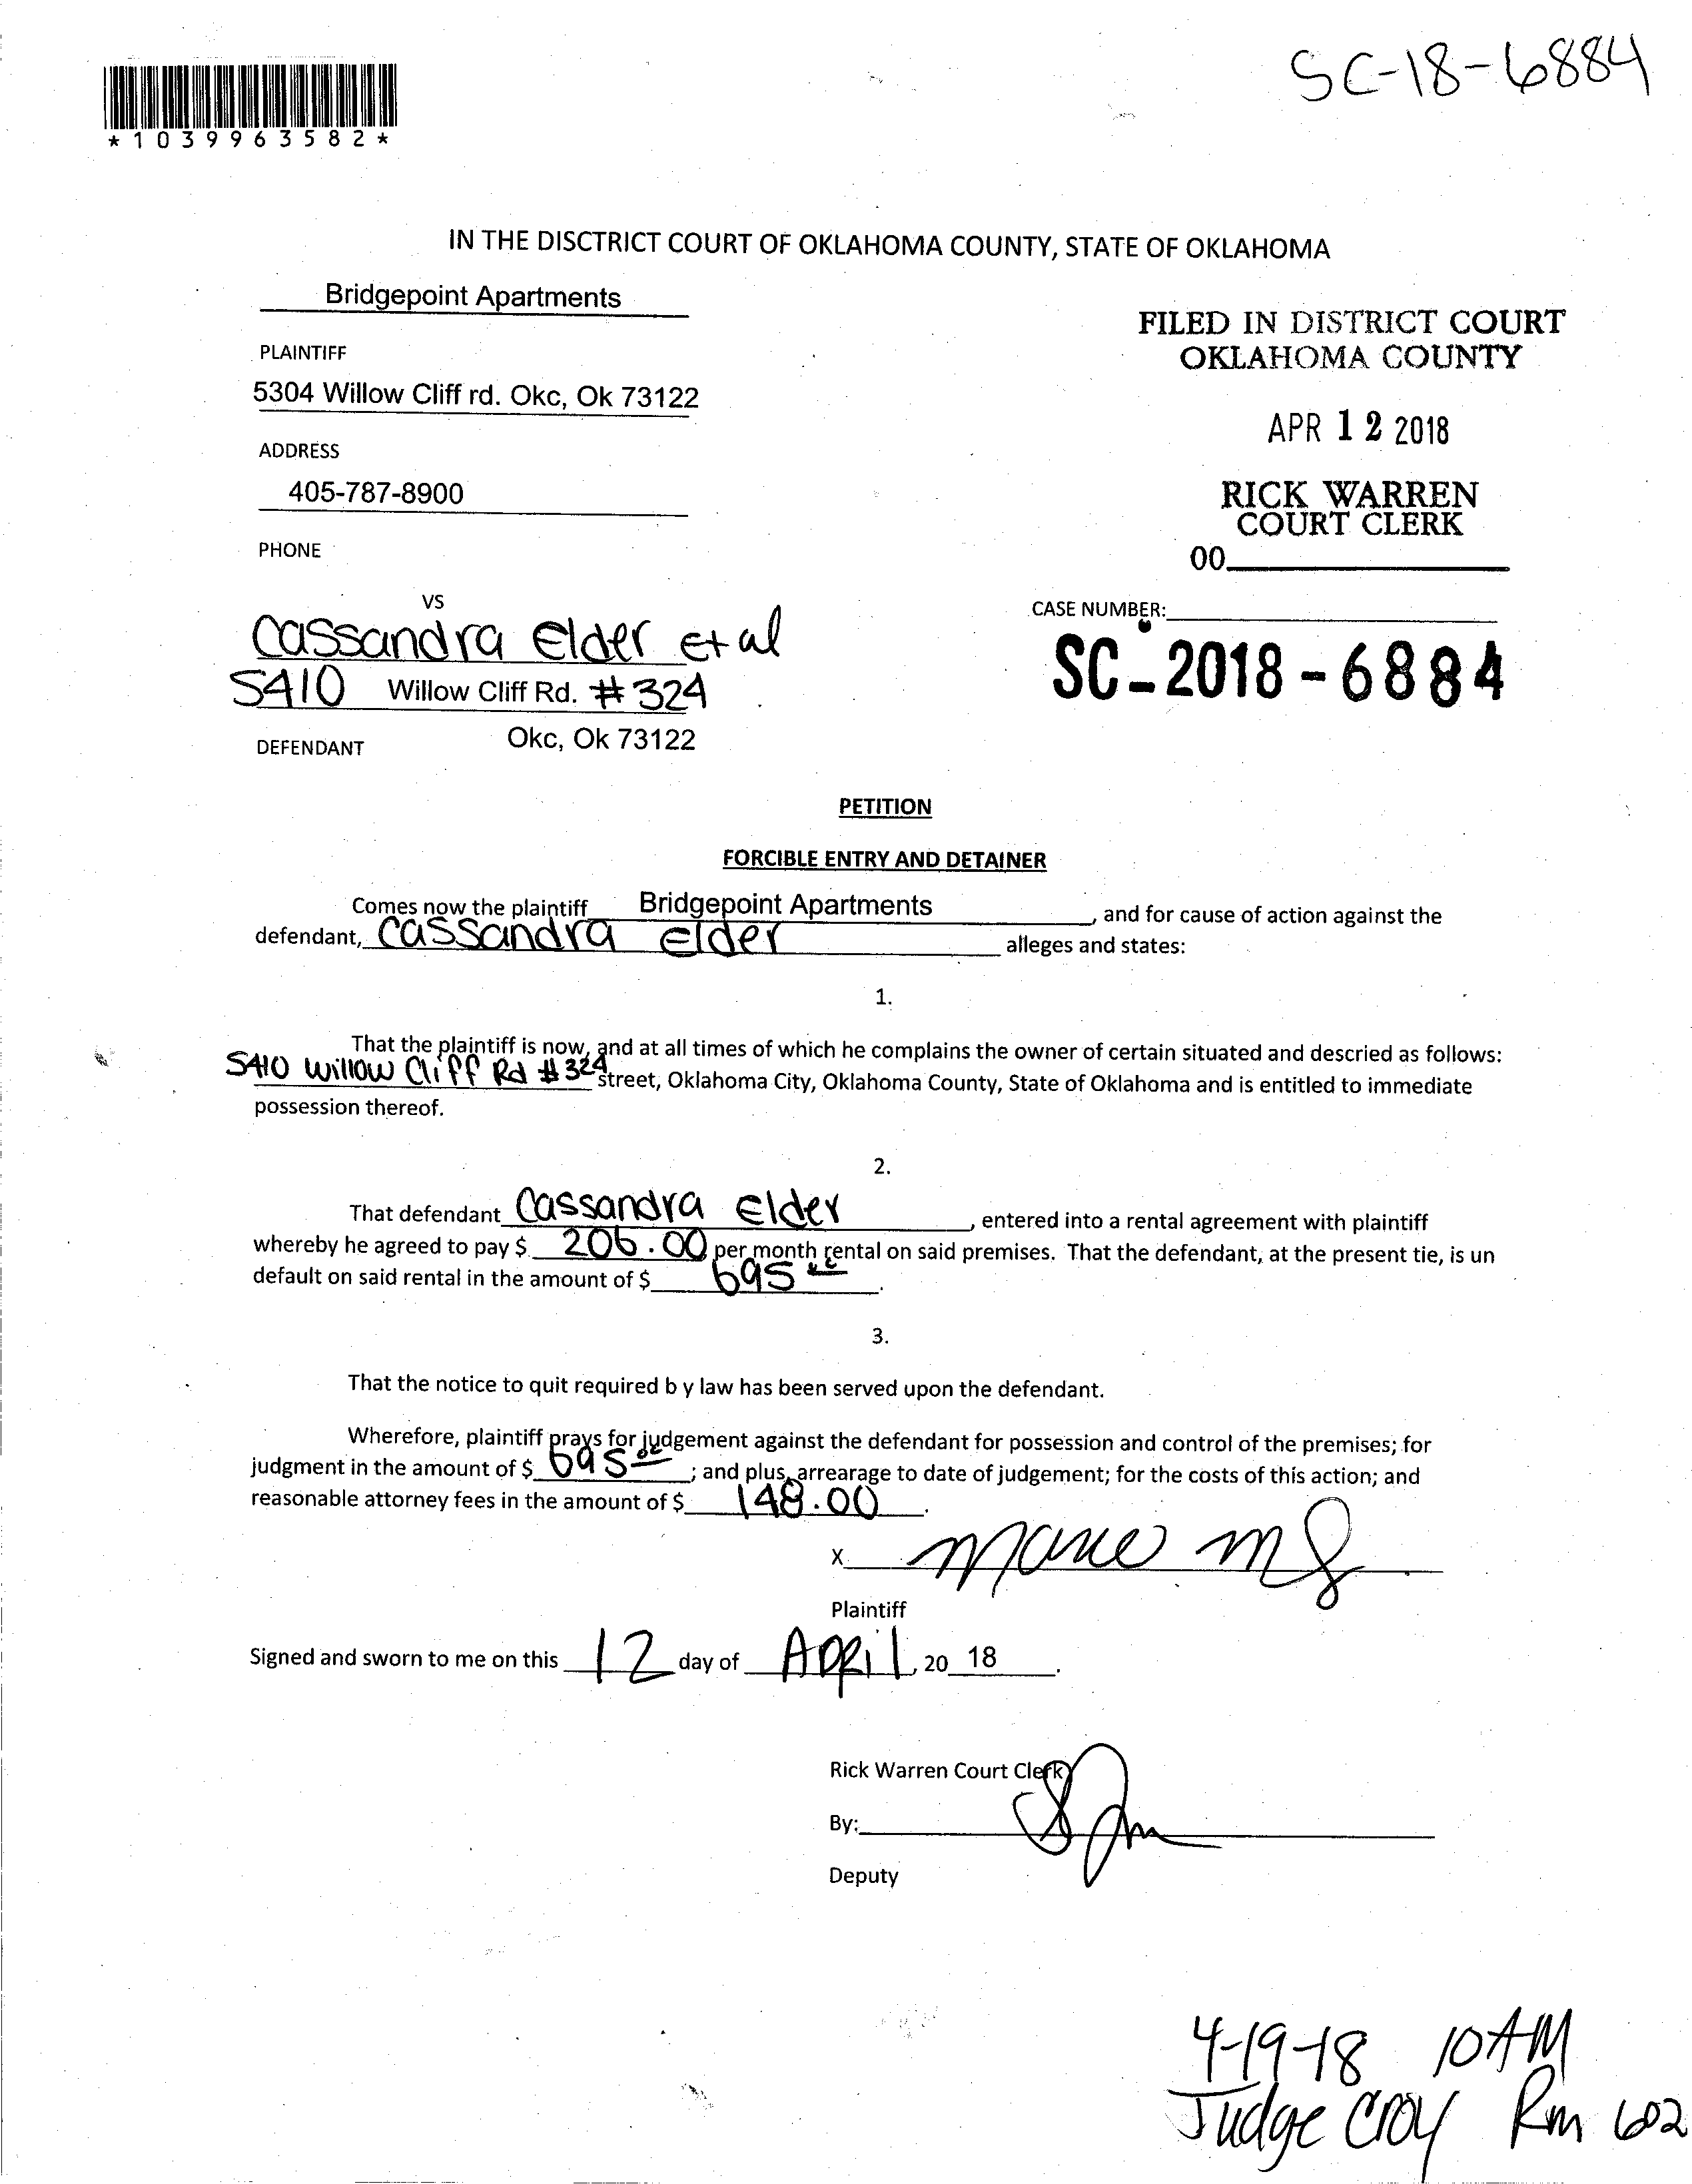 SC-18-6884
*1039963582*
IN THE DISCTRICT COURT OF OKLAHOMA COUNTY, STATE OF OKLAHOMA
Bridgepoint Apartments
PLAINTIFF
5304 Willow Cliff rd. Okc, Ok 73122
ADDRESS
405-787-8900
PHONE
FILED IN DISTRICT COURT
OKLAHOMA COUNTY
APR 12 2018
RICK WARREN
COURT CLERK
00
VS
Cassandra Elder et al
5410 Willow Cliff Rd. #324
Okc, Ok 73122
DEFENDANT
CASE NUMBER:
SC-2018-6884
PETITION
FORCIBLE ENTRY AND DETAINER
Comes now the plaintiff Bridgepoint Apartments, and for cause of action against the
defendant, Cassandra Elder alleges and states:
1.
That the plaintiff is now, and at all times of which he complains the owner of certain situated and descried as follows:
5410 Willow Cliff Rd #324 street, Oklahoma City, Oklahoma County, State of Oklahoma and is entitled to immediate
possession thereof.
2.
That defendant Cassandra Elder, entered into a rental agreement with plaintiff
whereby he agreed to pay $ 206.00 per month rental on said premises. That the defendant, at the present tie, is un
default on said rental in the amount of $ 695.00.
3.
That the notice to quit required b y law has been served upon the defendant.
Wherefore, plaintiff prays for judgement against the defendant for possession and control of the premises; for
judgment in the amount of $ 695.00; and plus, arrearage to date of judgement; for the costs of this action; and
reasonable attorney fees in the amount of $ 148.00.
X
Plaintiff
Signed and sworn to me on this 12 day of April, 20 18.
Rick Warren Court Clerk
By:
Deputy
4-19-18 10 AM
Judge Croy Rm 602